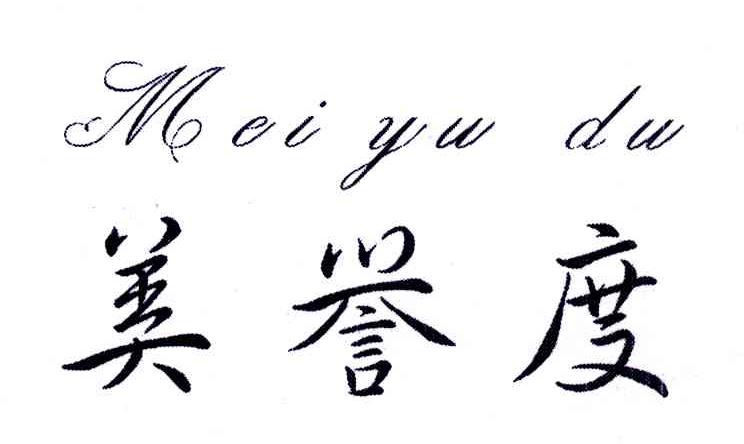 Mei yu du
美誉度